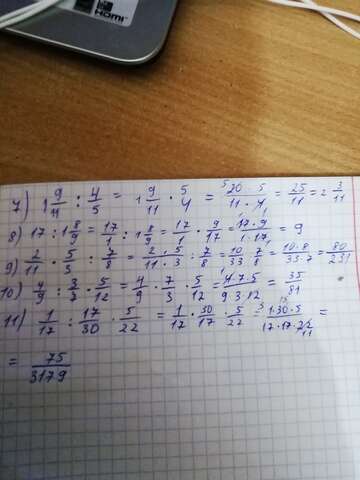 HDMI
7) 1 9/11 : 4/5 = 1 9/11 · 5/4 = 20 · 5 / 11 · 4 = 25/11 = 2 3/11
8) 17 : 1 8/9 = 17/1 : 1 8/9 = 17/1 · 9/17 = 17 · 9 / 1 · 17 = 9
9) 2/11 · 5/3 : 7/8 = 2 · 5 / 11 · 3 : 7/8 = 10/33 : 7/8 = 10 · 8 / 33 · 7 = 80/231
10) 4/9 : 3/7 · 5/12 = 4/9 · 7/3 · 5/12 = 4 · 7 · 5 / 9 · 3 · 12 = 35/81
11) 1/17 : 17/30 · 5/22 = 1/17 · 30/17 · 5/22 = 1 · 30 · 5 / 17 · 17 · 22 =
= 75/3179